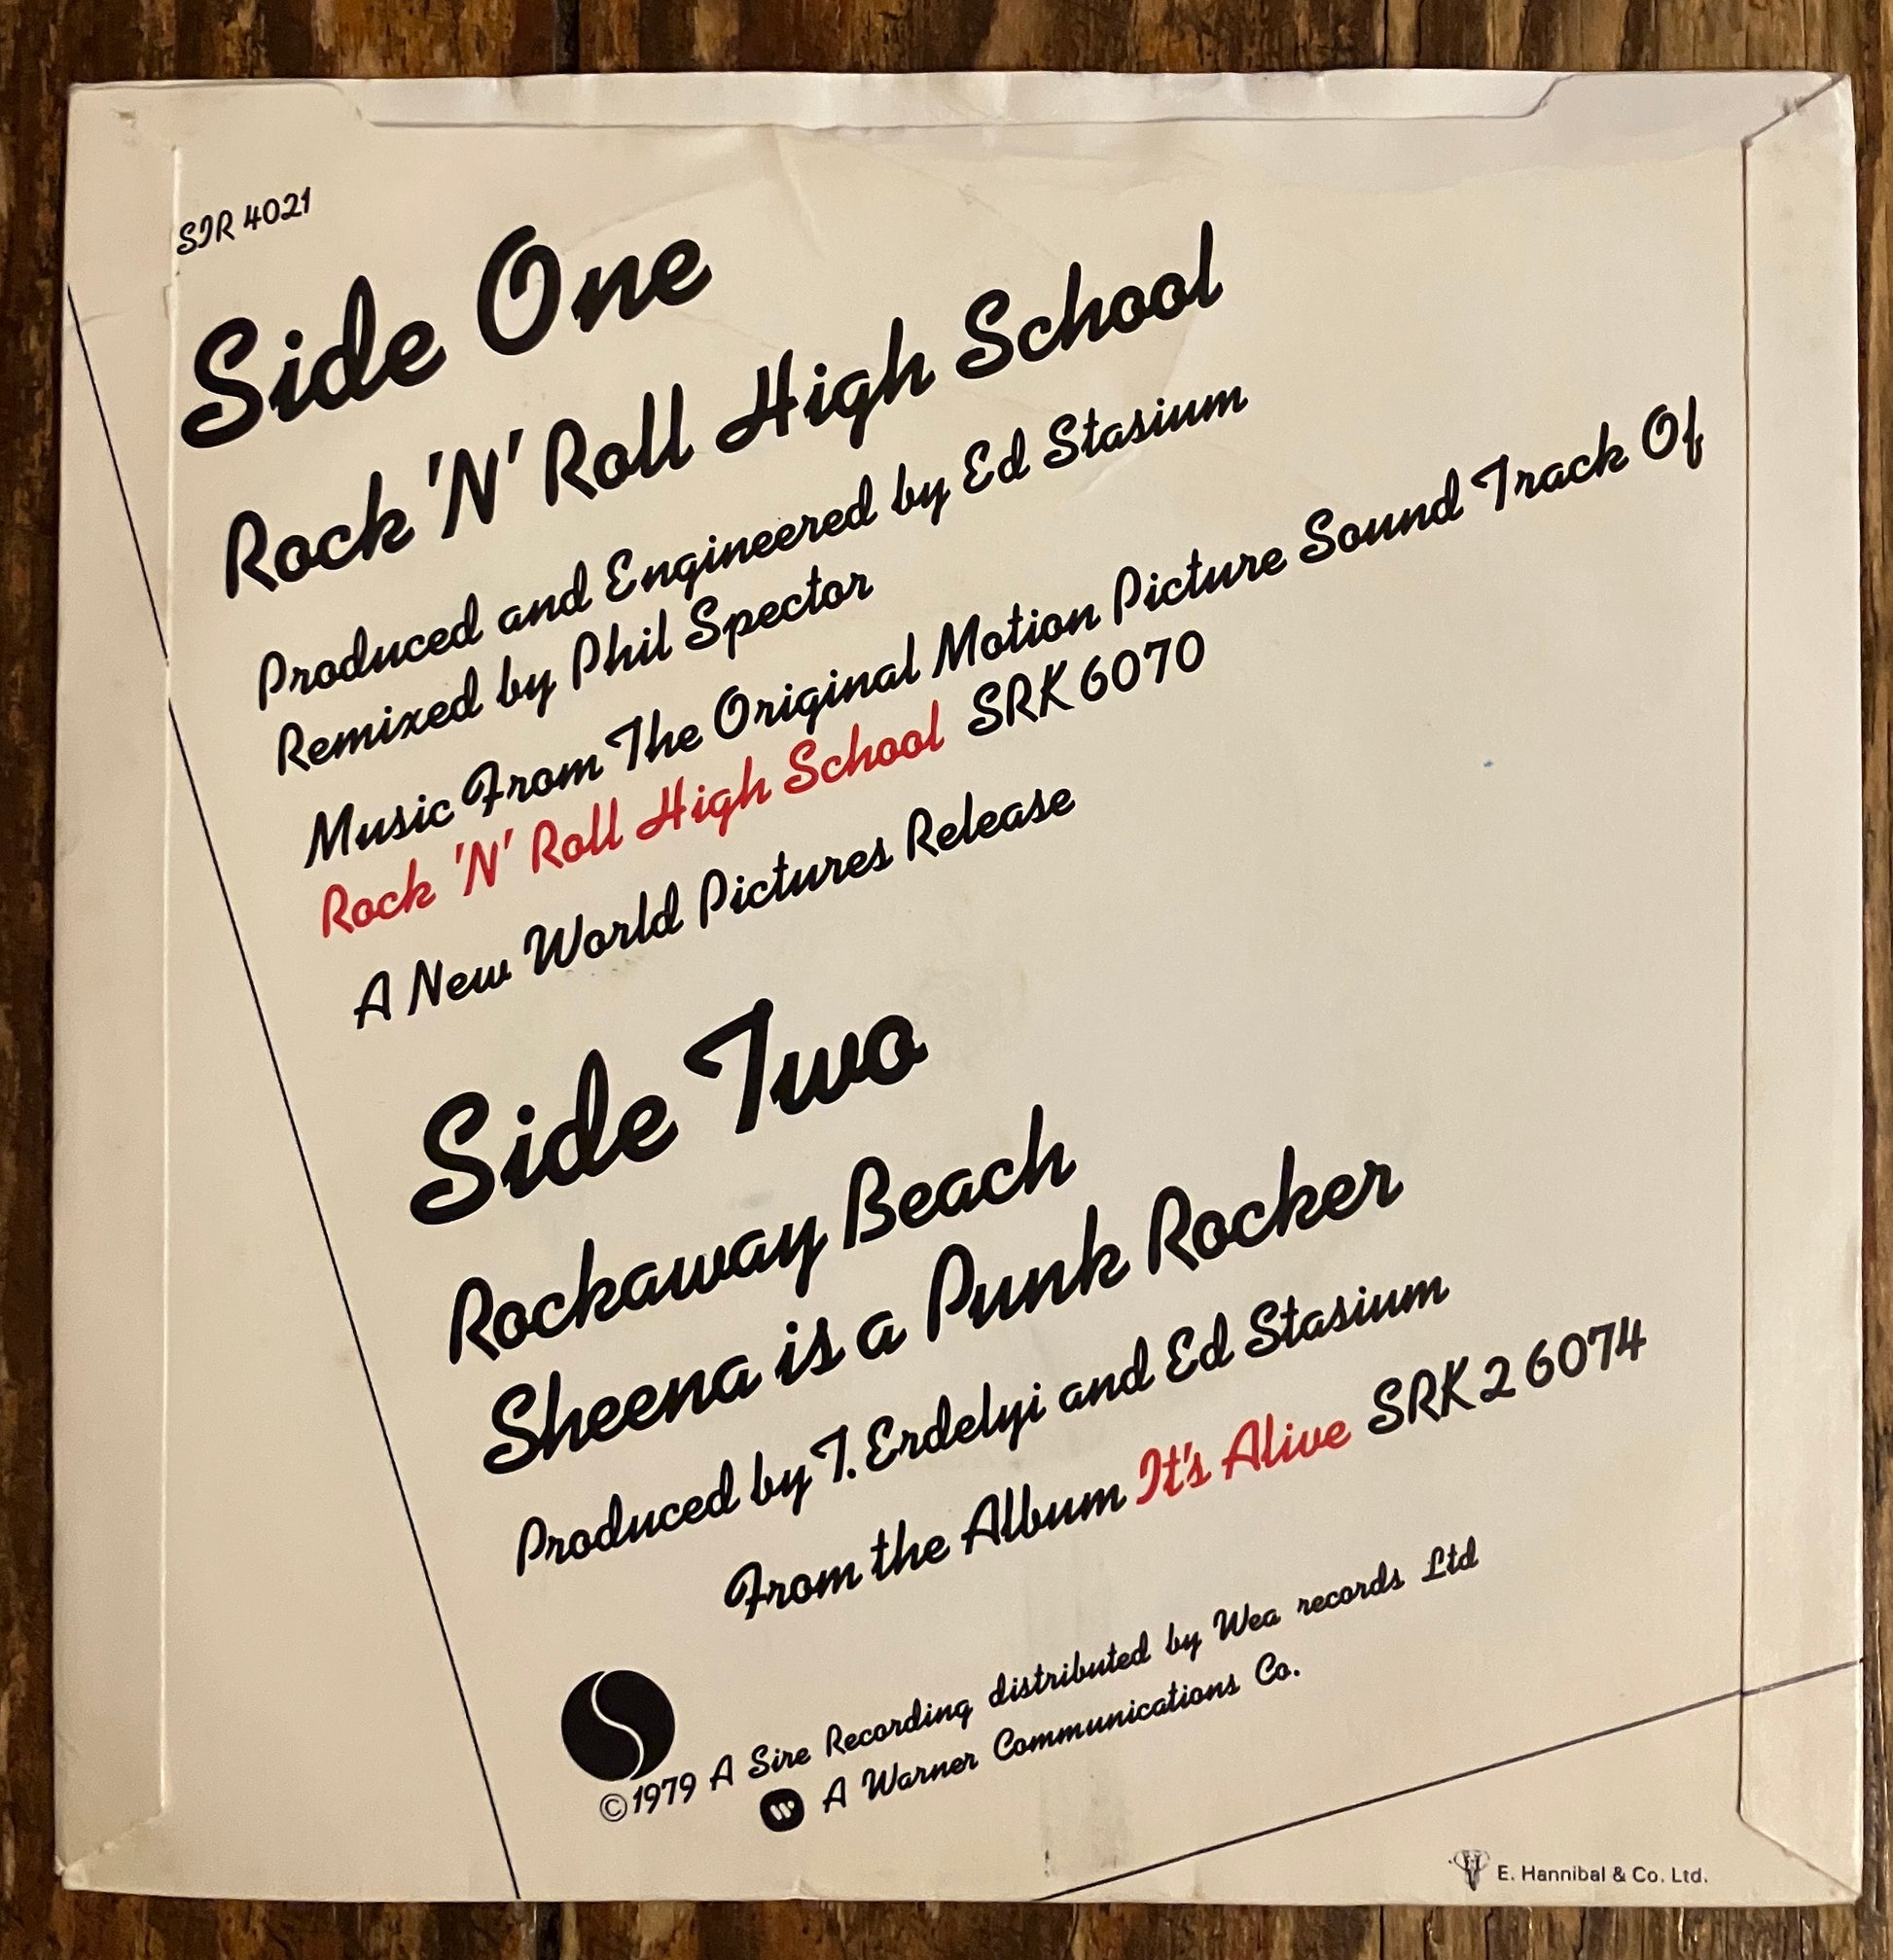 SIR 4021
Side One
Rock 'N' Roll High School
Produced and Engineered by Ed Stasium
Remixed by Phil Spector
Music From The Original Motion Picture Sound Track Of
Rock 'N' Roll High School SRK 6070
A New World Pictures Release
Side Two
Rockaway Beach
Sheena is a Punk Rocker
Produced by T. Erdelyi and Ed Stasium
From the Album It's Alive SRK 2 6074
©1979 A Sire Recording distributed by Wea records Ltd
W A Warner Communications Co.
E. Hannibal & Co. Ltd.